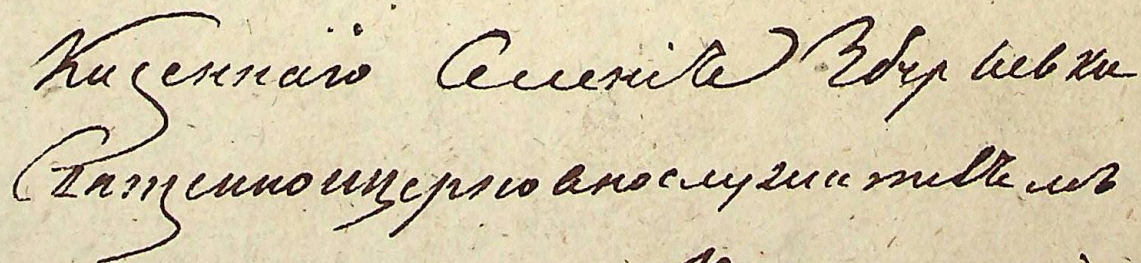 Казеннаго Селенія Збурьевки
Священноицерковнослужителемъ